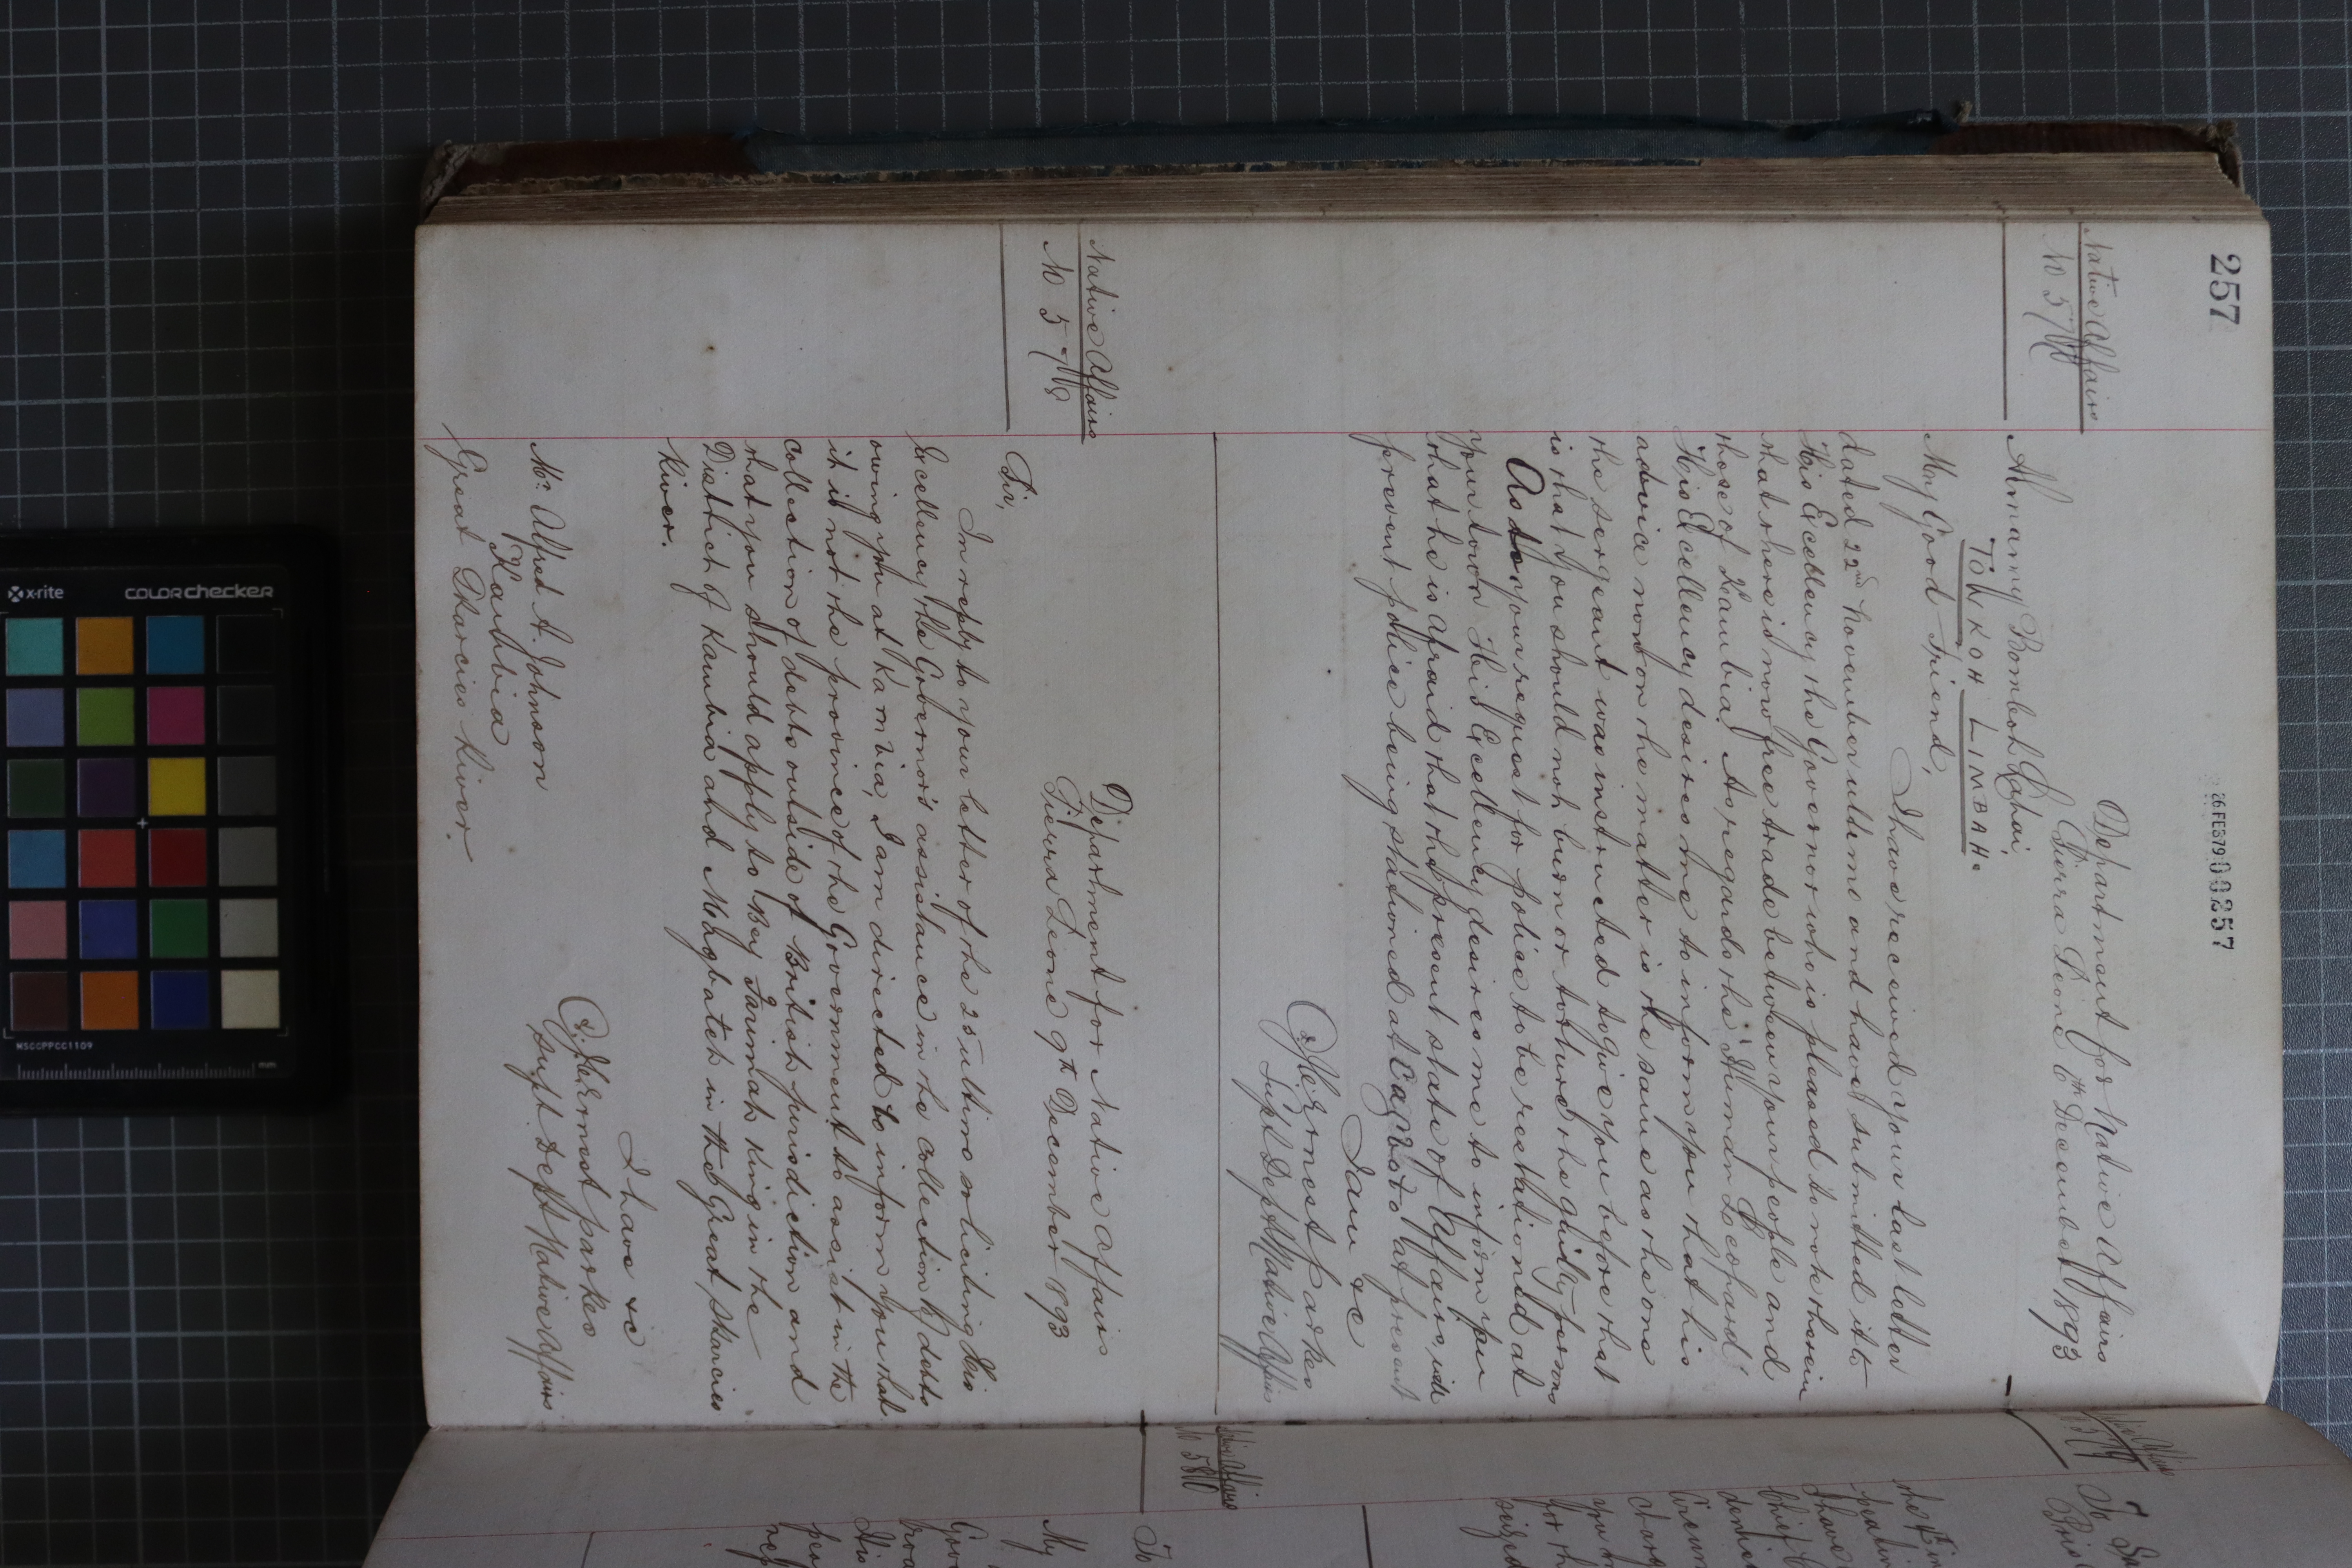 257
26FEB79 00257
Native Affairs
Department for Native Affairs
Sierra Leone 6th December 1893
Almamy Bomboh Lahai,
TOWKOH LIMBAH.
My Good Friend,
I have received your last letter
dated 22nd November ultimo and have submitted it to
His Excellency the Governor who is pleased to note therein
that there is now free trade between your people and
those of Kambia. As regards the "Human Leopard"
His Excellency desires me to inform you that his
advice now on the matter is the same as the one
the sergeant was instructed to give you before that
is that you should not burn or torture the guilty persons
As to your request for police to be restationed at
your town His Excellency desires me to inform you
that he is afraid that the present state of Affairs will
prevent police being stationed at at present
I am &c
J. C. Ernest Parkes
Supt Dept Native Affairs
Native Affairs
No 578
Department for Native Affairs
Sierra Leone 9th December 1893
Sir,
In reply to your letter of the 25 ultimo soliciting His
Excellency the Governor's assistance in the collection of debts
owing you at Kambia, I am directed to inform you that
it is not the province of the Government to assist in the
collection of debts outside of British jurisdiction and
that you should apply to Bey Farimah King in the
District of Kambia and Magbateh in the Great Skarcies
River.
I have &c
J. C. Ernest Parkes
Supt Dept Native Affairs
Mr. Alfred A. Johnson
Kambia
Great Skarcies River.